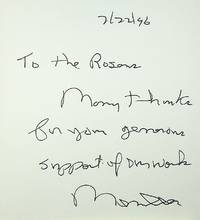 7/22/96
To the Rosens
Many thanks
for your generous
support of our work